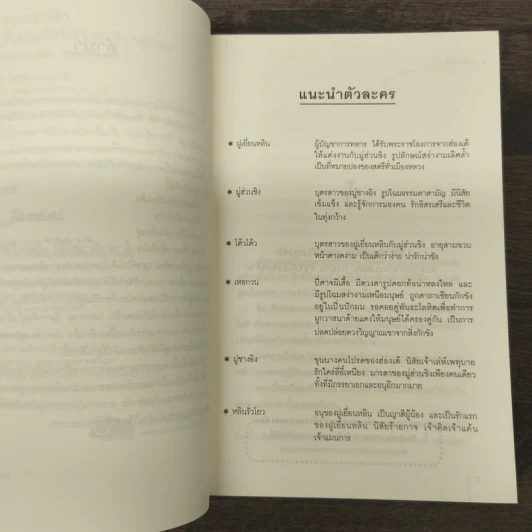 แนะนำตัวละคร
* ฝูเยี่ยนหลิน ผู้บัญชาการทหาร ได้รับพระราชโองการจากฮ่องเต้
ให้แต่งงานกับมู่ส่วนชิง รูปลักษณ์สง่างามเลิศล้ำ
เป็นที่หมายปองของสตรีทั่วเมืองหลวง
* มู่ส่วนชิง บุตรสาวของมู่ชางอิง รูปโฉมธรรมดาสามัญ มีนิสัย
เข้มแข็ง และรู้จักการมองคน รักอิสรเสรีและชีวิต
ในทุ่งกว้าง
* โต้วโต้ว บุตรสาวของฝูเยี่ยนหลินกับมู่ส่วนชิง อายุสามขวบ
หน้าตางดงาม เป็นเด็กว่าง่าย น่ารักน่าชัง
* เหอกวน ปีศาจผีเสื้อ มีดวงตารูปดอกท้อน่าหลงใหล และ
มีรูปโฉมสง่างามเหนือมนุษย์ ถูกคาถาเซียนกักขัง
อยู่ในปิ่นปักผม รอคอยคู่พันธะโลหิตเพื่อทำการ
ผูกวาสนาด้ายแดงให้มนุษย์ได้ครองคู่กัน เป็นการ
ปลดปล่อยดวงวิญญาณเขาจากสิ่งกักขัง
* มู่ชางอิง ขุนนางคนโปรดของฮ่องเต้ นิสัยเจ้าเล่ห์เพทุบาย
รักใคร่ลี่อี๋เหนียง มารดาของมู่ส่วนชิงเพียงคนเดียว
ทั้งที่มีภรรยาเอกและอนุอีกมากมาย
* หลินรั่วโยว อนุของฝูเยี่ยนหลิน เป็นญาติผู้น้อง และเป็นรักแรก
ของฝูเยี่ยนหลิน นิสัยร้ายกาจ เจ้าคิดเจ้าแค้น
เจ้าแผนการ